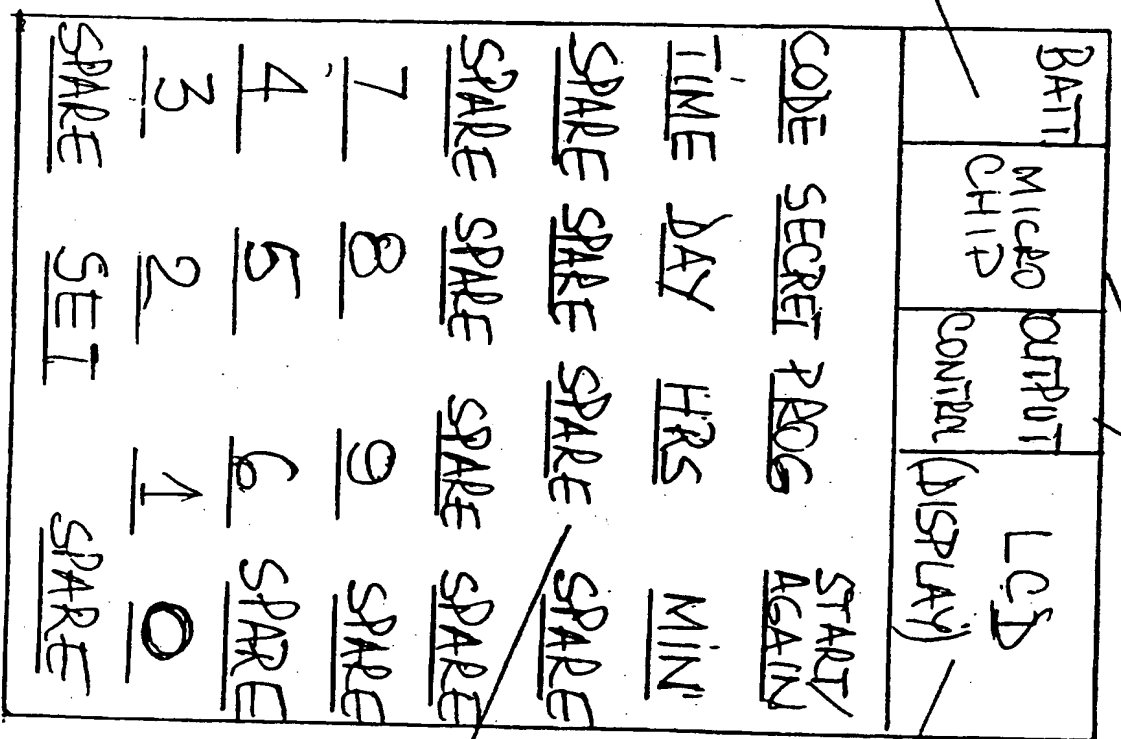 BATT
MICRO
CHIP
OUTPUT
CONTROL
LCD
(DISPLAY)
CODE SECRET PROG START
AGAIN
TIME DAY HRS MIN
SPARE SPARE SPARE SPARE
SPARE SPARE SPARE SPARE
7 8 9 SPARE
4 5 6 SPARE
3 2 1 0
SPARE SET SPARE